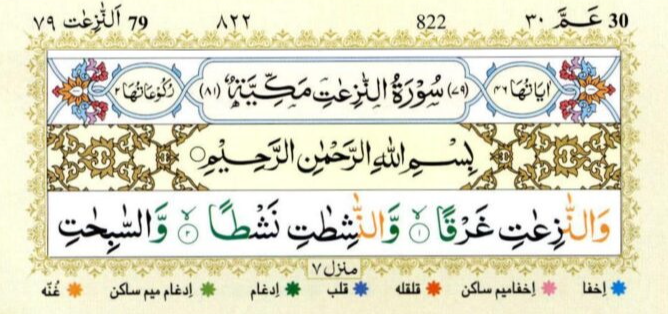 30 عَـمَّ ٣٠ 822 ٨٢٢ 79 اَلنّٰزِعٰت ٧٩
اٰيَاتُهَا ٤٦ (٧٩) سُوْرَةُ النّٰزِعٰتِ مَكِّيَّةٌ (٨١) رُكُوْعَاتُهَا ٢
بِسْمِ اللّٰهِ الرَّحْمٰنِ الرَّحِيْمِ
وَالنّٰزِعٰتِ غَرْقًا ۙ﴿١﴾ وَّالنّٰشِطٰتِ نَشْطًا ۙ﴿٢﴾ وَّالسّٰبِحٰتِ
منزل ٧
اِخفا اِخفامیم ساکن قلقله قلب اِدغام اِدغام میم ساکن غُنّه